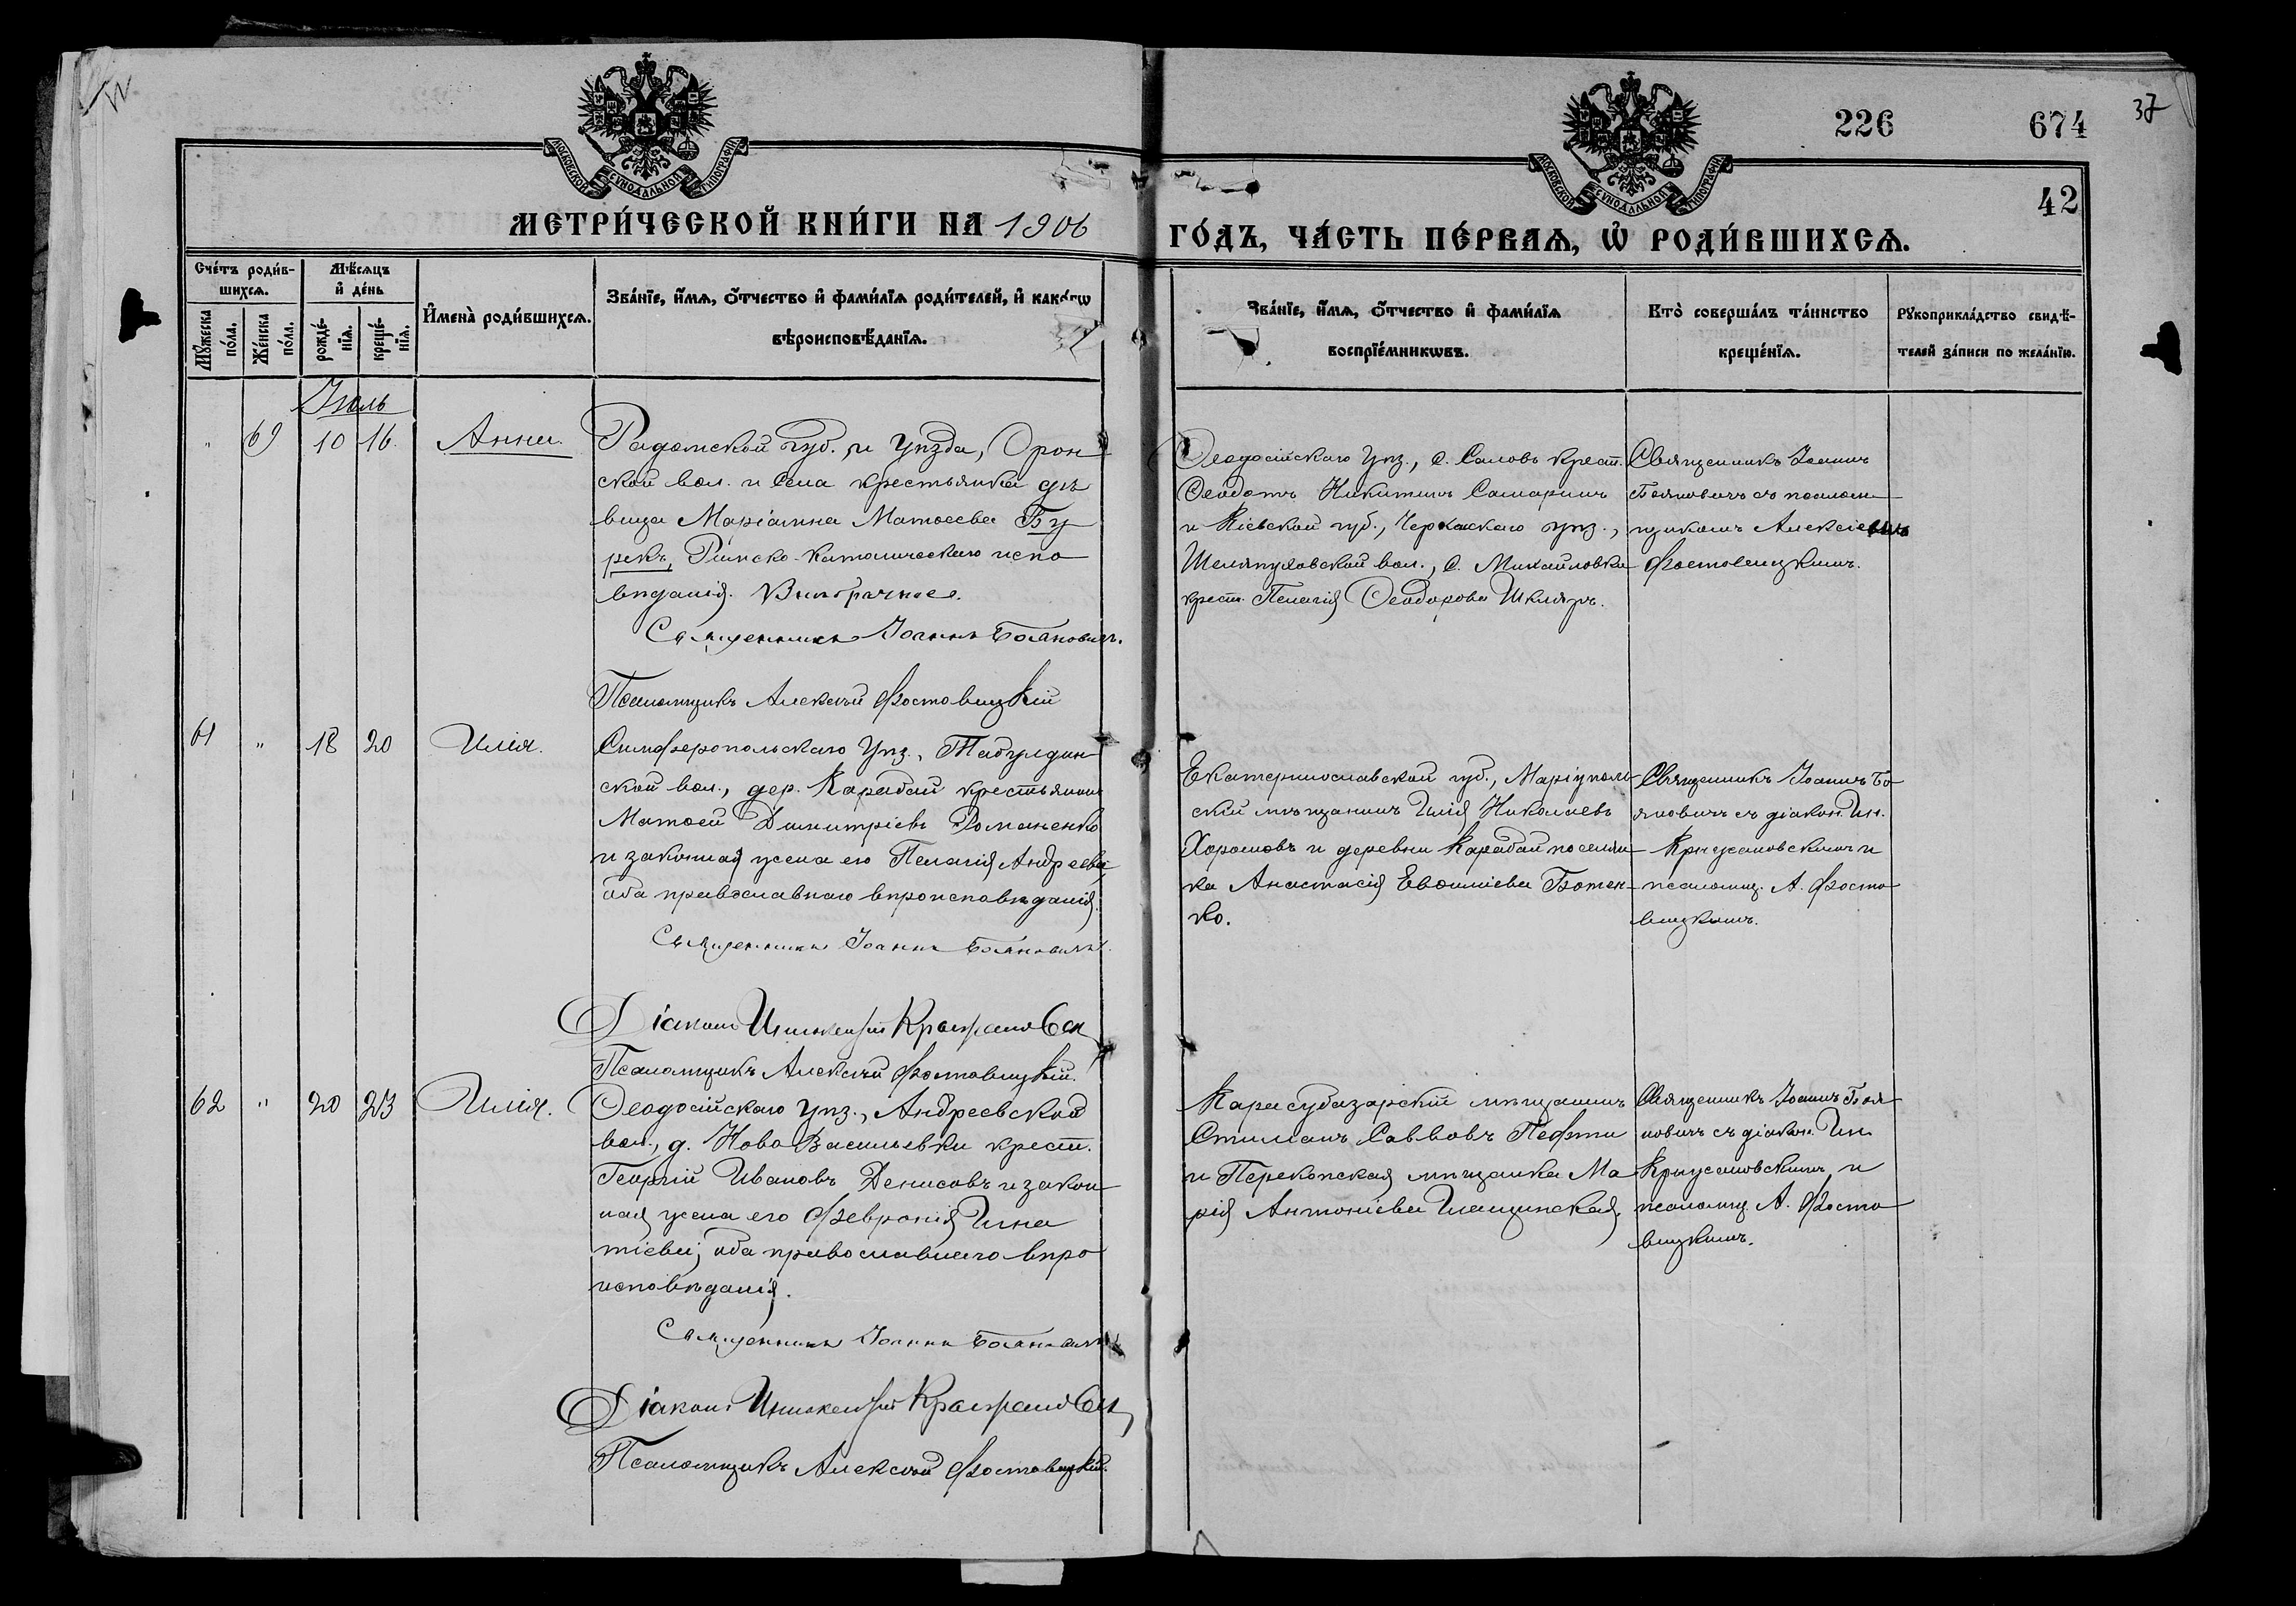 226 674 37
42
МОСКОВСКОЙ СѴНОДАЛЬНОЙ ТИПОГРАФІИ
МОСКОВСКОЙ СѴНОДАЛЬНОЙ ТИПОГРАФІИ
МЕТРИ́ЧЕСКОЙ КНИ́ГИ НА 1906
ГО́ДЪ, ЧА́СТЬ ПЕ́РВАѦ, Ѡ҆ РОДИ́ВШИХСѦ.
Сче́тъ роди́в-
шихсѧ.
Мꙋ́жеска по́ла.
Же́нска по́ла.
Мѣ́сѧцъ
и҆ де́нь
рожде́-
нїѧ.
креще́-
нїѧ.
И҆мена̀ роди́вшихсѧ.
Зва́нїе, и҆́мѧ, ѻ҆́тчество и҆ фами́лїѧ роди́телей, и҆ како́гѡ
вѣроисповѣ́данїѧ.
Зва́нїе, и҆́мѧ, ѻ҆́тчество и҆ фами́лїѧ
воспрїе́мникѡвъ.
Кто̀ соверша́лъ та́инство
креще́нїѧ.
Рꙋкоприкла́дство свидѣ́-
телей за́писи по жела́нїю.
Іюль
" 69 10 16. Анна.
Радомской губ., и уѣзда, Орон
ской вол. и села крестьянка дѣ
вица Маріанна Матѳеева Бу
рекъ, Римско-католическаго испо
вѣданія. Внѣбрачное.
Священникъ Іоаннъ Бояновичъ.
Псаломщикъ Алексѣй Фостовицкій
Ѳеодосійскаго уѣз., с. Саловъ крест.
Ѳеодотъ Никитинъ Самаринъ
и Кіевской губ., Черкаскаго уѣз.,
Шелепуховской вол., с. Михайловки
крест. Пелагія Ѳеодорова Шкляръ.
Священникъ Іоаннъ
Бояновичъ съ псалом-
щикомъ Алексіемъ
Фостовицкимъ.
61 " 18 20 Илія.
Симферопольскаго уѣз., Табулдин
ской вол., дер. Карабай крестьянинъ
Матѳей Димитріевъ Романенко
и законная жена его Пелагія Андреева,
оба православнаго вѣроисповѣданія.
Священникъ Іоаннъ Бояновичъ.
Діаконъ Иннокентій
Псаломщикъ Алексѣй Фостовицкій.
Екатеринославской губ., Маріуполь-
скій мѣщанинъ Илія Николаевъ
Хорошовъ и деревни Карабай поселян-
ка Анастасія Евѳиміева Ботен-
ко.
Священникъ Іоаннъ Бо-
яновичъ съ діакон. Ин.
Крыжановскимъ и
псаломщ. А. Фосто-
вицкимъ.
62 " 20 23 Илія.
Ѳеодосійскаго уѣз., Андреевской
вол., д. Ново Васильевки крест.
Георгій Ивановъ Денисовъ и закон-
ная жена его Февронія Игна
тіева; оба православнаго вѣро
исповѣданія.
Священникъ Іоаннъ Бояновичъ
Діаконъ Иннокентій
Псаломщикъ Алексѣй Фостовицкій.
Карасубазарскій мѣщанинъ
Стиліанъ Саввовъ Пефти
и Перекопская мѣщанка Ма
рія Антоніева Ильщинская.
Священникъ Іоаннъ Боя-
новичъ съ діакон. Ин.
Крыжановскимъ и
псаломщ. А. Фосто-
вицкимъ.